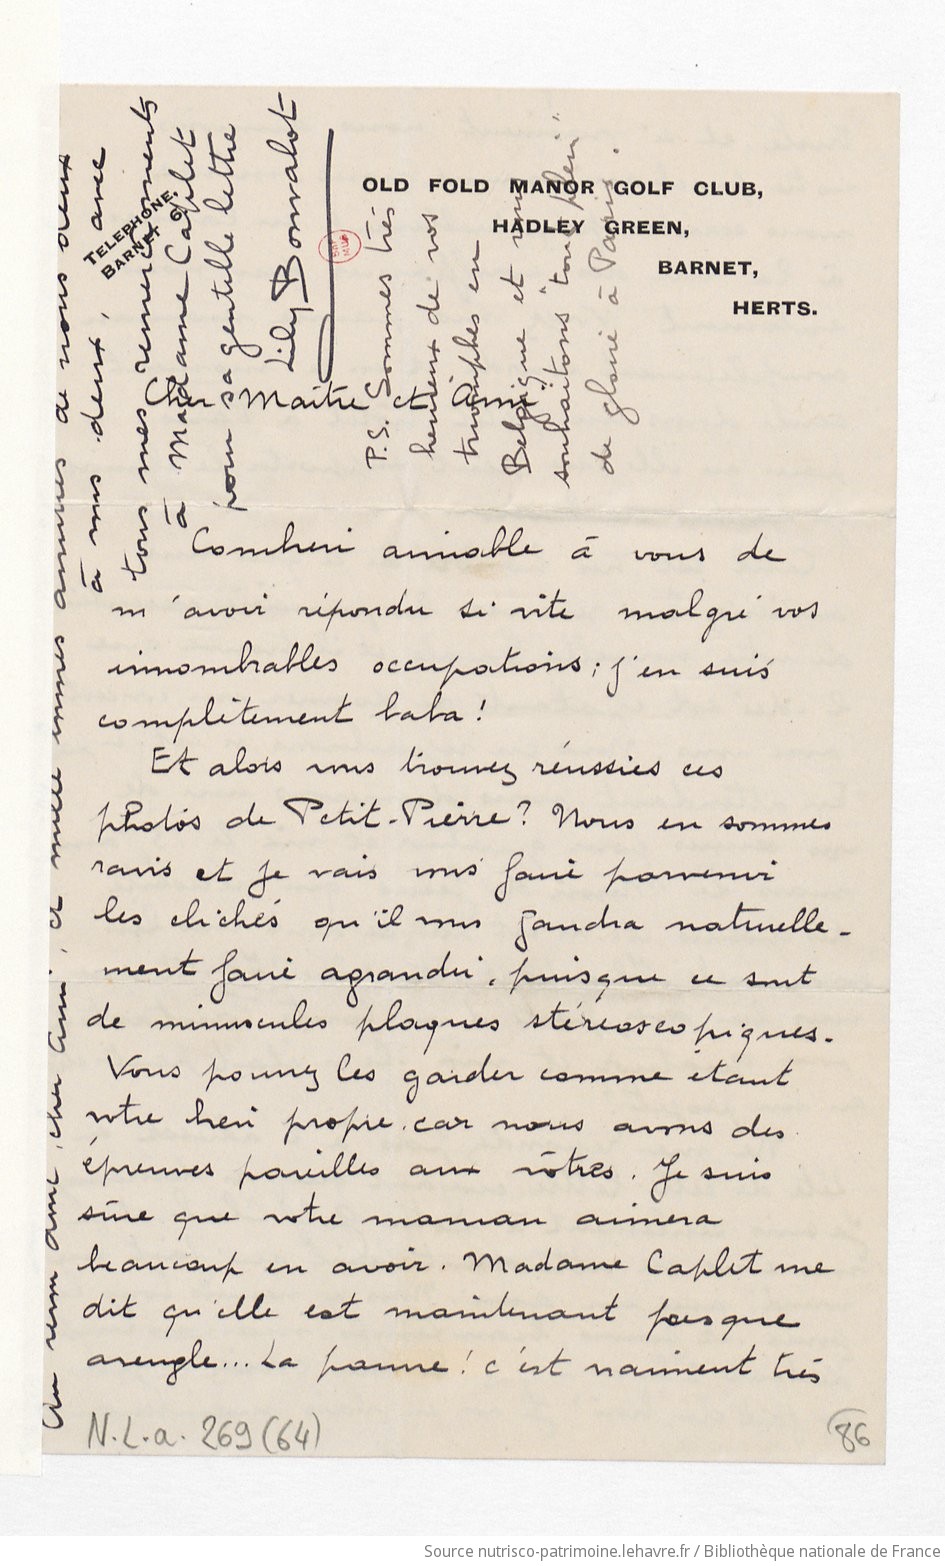 OLD FOLD MANOR GOLF CLUB,
HADLEY GREEN,
BARNET,
HERTS.
TELEPHONE.
BARNET 9.
Cher Maître et Ami,
Combien aimable à vous de
m'avoir répondu si vite malgré vos
innombrables occupations ; j'en suis
complètement baba !
Et alors vous trouvez réussies ces
photos de Petit-Pierre ? Nous en sommes
ravis et je vais vous faire parvenir
les clichés qu'il vous faudra naturelle-
ment faire agrandir, puisque ce sont
de minuscules plaques stéréoscopiques.
Vous pouvez les garder comme étant
votre bien propre, car nous avons des
épreuves pareilles aux vôtres. Je suis
sûre que votre maman aimera
beaucoup en avoir. Madame Caplet me
dit qu'elle est maintenant presque
aveugle... La pauvre ! c'est vraiment très
Au revoir, cher Ami, et mille bonnes amitiés de nous deux
à vous deux, avec
tous mes remerciements
à Madame Caplet
pour sa gentille lettre
Lily Bonvalot
P.S. Sommes très
heureux de vos
triomphes en
Belgique et vous
souhaitons "tout plein"
de gloire à Paris.
N.L.a. 269 (64)
86
Source nutrisco-patrimoine.lehavre.fr / Bibliothèque nationale de France